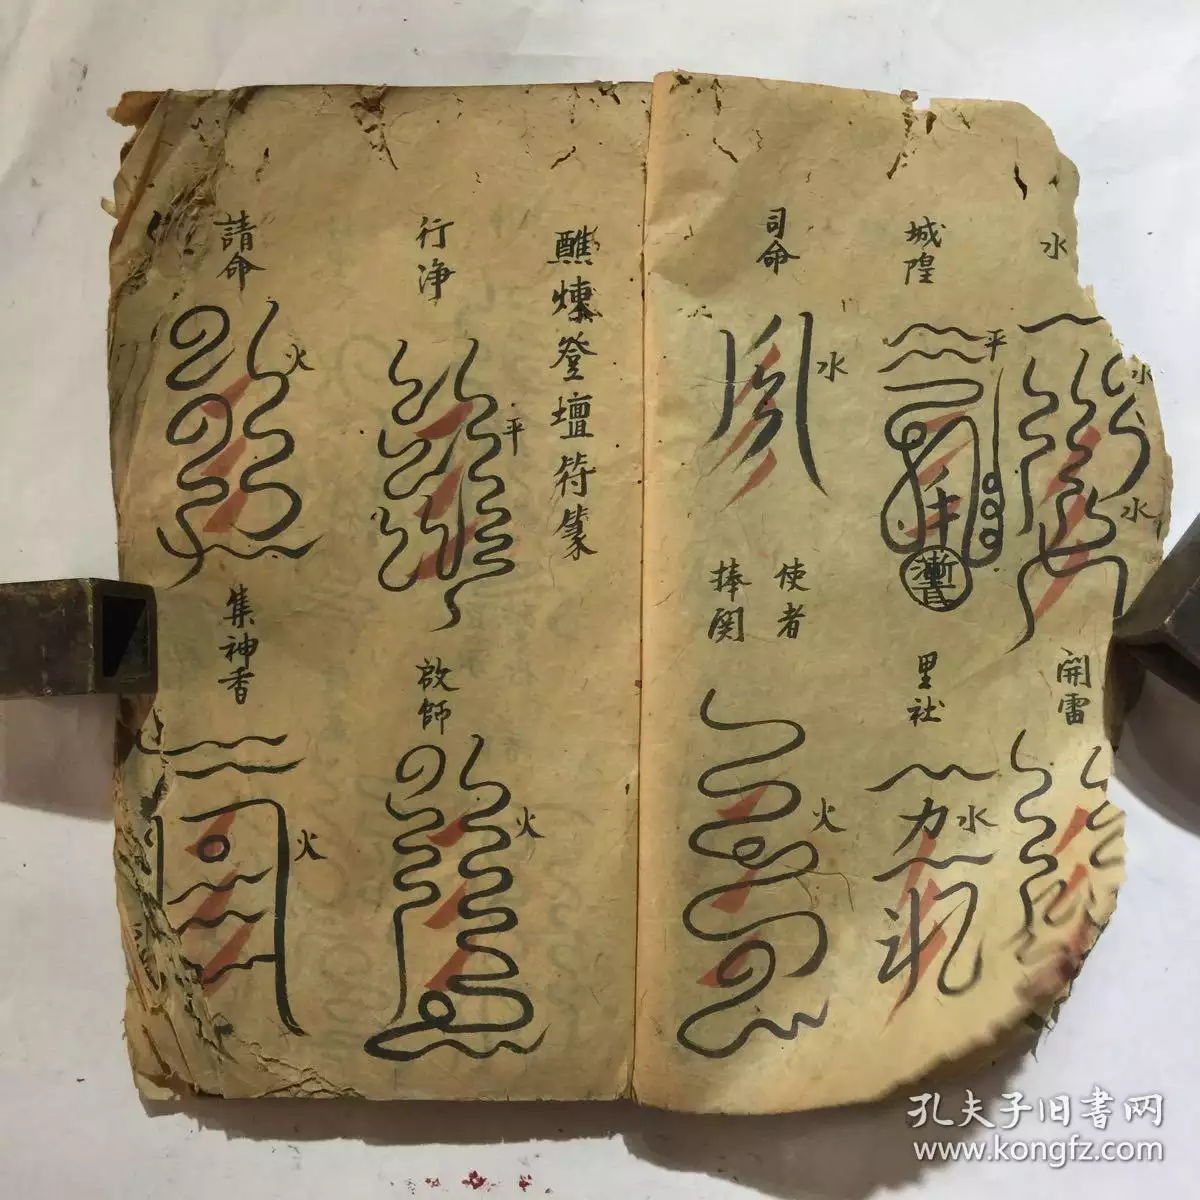 水
水
水
開雷
城隍
平
里社
力
水
司命
水
使者
捧関
火
醮煉登壇符篆
行净
平
啟師
火
請命
火
集神香
火
孔夫子旧书网
www.kongfz.com